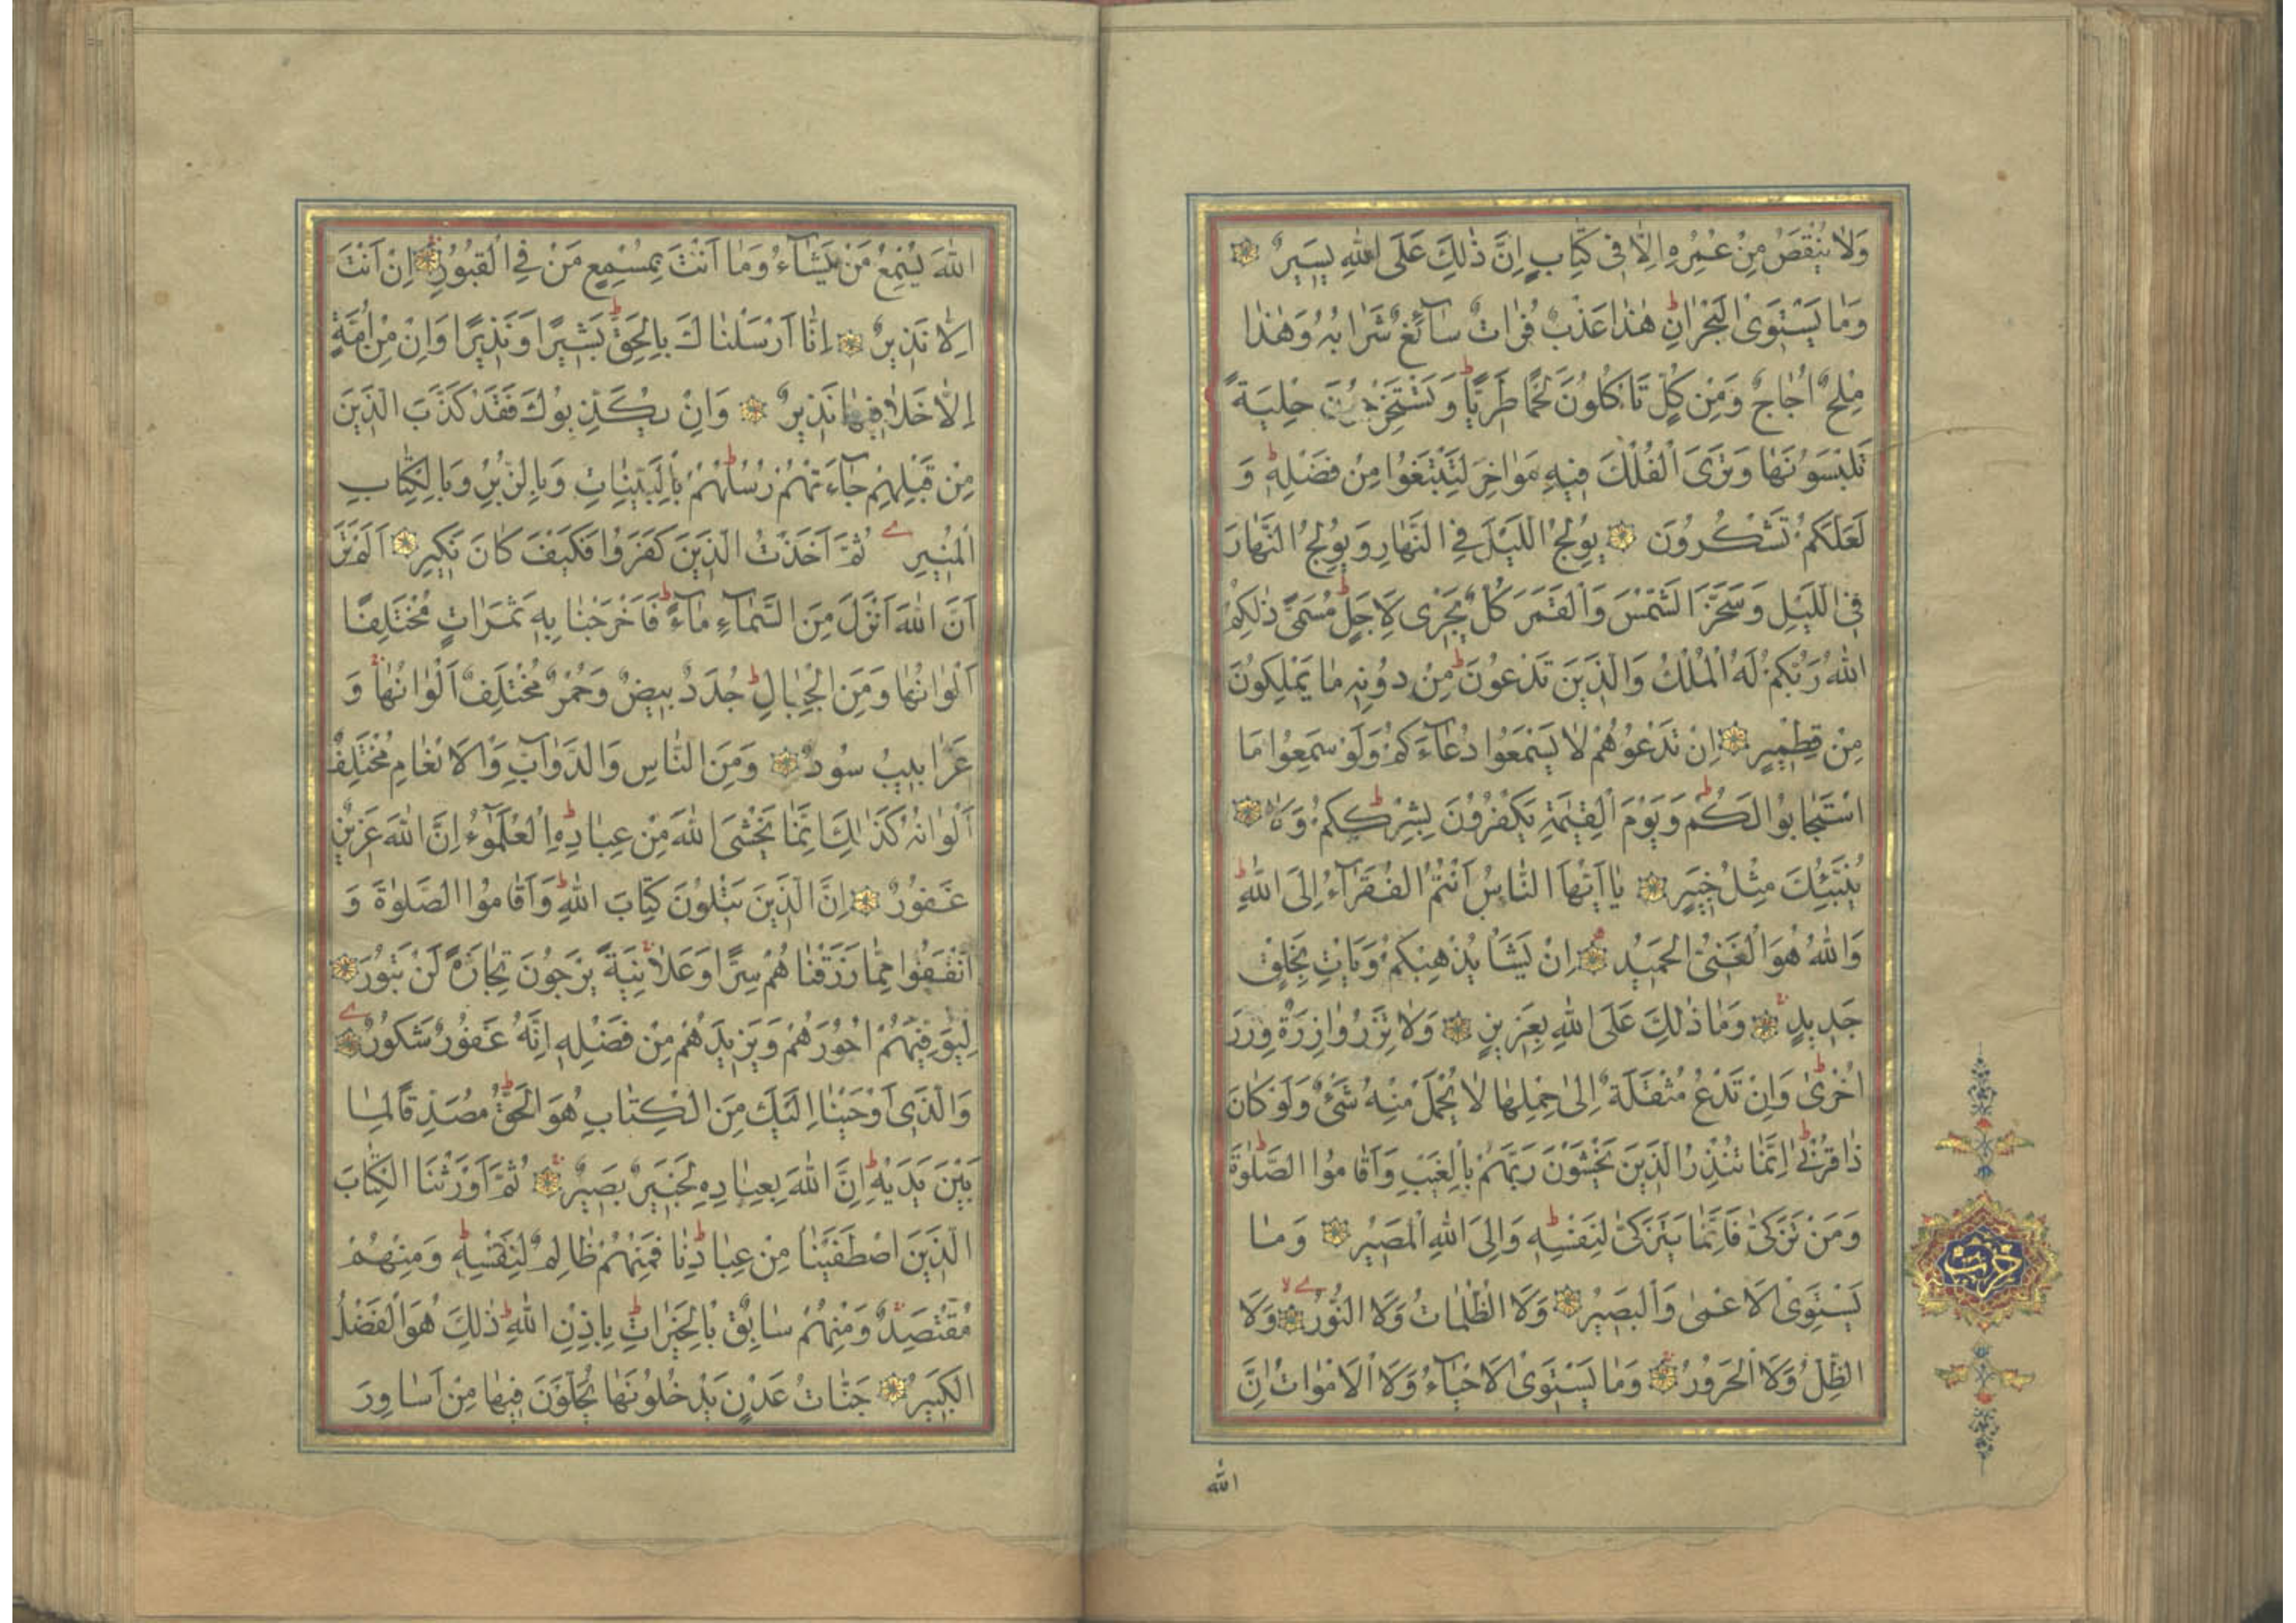 وَلَا يُنْقَصُ مِنْ عُمُرِهِ اِلَّا فِى كِتَابٍ اِنَّ ذٰلِكَ عَلَى اللّٰهِ يَسِيرٌ
وَمَا يَسْتَوِى الْبَحْرَانِ ط هٰذَا عَذْبٌ فُرَاتٌ سَآئِغٌ شَرَابُهُ وَهٰذَا
مِلْحٌ اُجَاجٌ وَمِنْ كُلٍّ تَاْكُلُونَ لَحْمًا طَرِيًّا ط وَتَسْتَخْرِجُونَ حِلْيَةً
تَلْبَسُونَهَا وَتَرَى الْفُلْكَ فِيهِ مَوَاخِرَ لِتَبْتَغُوا مِنْ فَضْلِهِ ط وَ
لَعَلَّكُمْ تَشْكُرُونَ يُولِجُ اللَّيْلَ فِى النَّهَارِ وَيُولِجُ النَّهَارَ
فِى اللَّيْلِ وَسَخَّرَ الشَّمْسَ وَالْقَمَرَ كُلٌّ يَجْرِى لِاَجَلٍ ط مُسَمًّى ذٰلِكُمُ
اللّٰهُ رَبُّكُمْ لَهُ الْمُلْكُ وَالَّذِينَ تَدْعُونَ ط مِنْ دُونِهِ مَا يَمْلِكُونَ
مِنْ قِطْمِيرٍ اِنْ تَدْعُوهُمْ لَا يَسْمَعُوا دُعَآءَكُمْ وَلَوْ سَمِعُوا مَا
اسْتَجَابُوا لَكُمْ ط وَيَوْمَ الْقِيٰمَةِ يَكْفُرُونَ بِشِرْكِكُمْ ط وَلَا
يُنَبِّئُكَ مِثْلُ خَبِيرٍ يَا اَيُّهَا النَّاسُ اَنْتُمُ الْفُقَرَآءُ اِلَى اللّٰهِ ط
وَاللّٰهُ هُوَ الْغَنِىُّ الْحَمِيدُ اِنْ يَشَاْ يُذْهِبْكُمْ وَيَاْتِ بِخَلْقٍ
جَدِيدٍ وَمَا ذٰلِكَ عَلَى اللّٰهِ بِعَزِيزٍ وَلَا تَزِرُ وَازِرَةٌ وِزْرَ
اُخْرٰى ط وَاِنْ تَدْعُ مُثْقَلَةٌ اِلٰى حِمْلِهَا لَا يُحْمَلْ مِنْهُ شَىْءٌ وَلَوْ كَانَ
ذَا قُرْبٰى ط اِنَّمَا تُنْذِرُ الَّذِينَ يَخْشَوْنَ رَبَّهُمْ بِالْغَيْبِ وَاَقَامُوا الصَّلٰوةَ ط
وَمَنْ تَزَكّٰى فَاِنَّمَا يَتَزَكّٰى لِنَفْسِهِ ط وَاِلَى اللّٰهِ الْمَصِيرُ وَمَا
يَسْتَوِى الْاَعْمٰى وَالْبَصِيرُ وَلَا الظُّلُمَاتُ وَلَا النُّورُ وَلَا
الظِّلُّ وَلَا الْحَرُورُ وَمَا يَسْتَوِى الْاَحْيَآءُ وَلَا الْاَمْوَاتُ اِنَّ
اللّٰه
حزب
اللّٰهَ يُسْمِعُ مَنْ يَشَآءُ وَمَا اَنْتَ بِمُسْمِعٍ مَنْ فِى الْقُبُورِ اِنْ اَنْتَ
اِلَّا نَذِيرٌ اِنَّا اَرْسَلْنَاكَ بِالْحَقِّ ط بَشِيرًا وَنَذِيرًا وَاِنْ مِنْ اُمَّةٍ
اِلَّا خَلَا فِيهَا نَذِيرٌ وَاِنْ يُكَذِّبُوكَ فَقَدْ كَذَّبَ الَّذِينَ
مِنْ قَبْلِهِمْ جَآءَتْهُمْ رُسُلُهُمْ ط بِالْبَيِّنَاتِ وَبِالزُّبُرِ وَبِالْكِتَابِ
الْمُنِيرِ ثُمَّ اَخَذْتُ الَّذِينَ كَفَرُوا فَكَيْفَ كَانَ نَكِيرِ اَلَمْ تَرَ
اَنَّ اللّٰهَ اَنْزَلَ مِنَ السَّمَآءِ مَآءً ط فَاَخْرَجْنَا بِهِ ثَمَرَاتٍ مُخْتَلِفًا
اَلْوَانُهَا وَمِنَ الْجِبَالِ ط جُدَدٌ بِيضٌ وَحُمْرٌ مُخْتَلِفٌ اَلْوَانُهَا وَ
غَرَابِيبُ سُودٌ وَمِنَ النَّاسِ وَالدَّوَآبِّ وَالْاَنْعَامِ مُخْتَلِفٌ
اَلْوَانُهُ كَذٰلِكَ اِنَّمَا يَخْشَى اللّٰهَ مِنْ عِبَادِهِ ط الْعُلَمٰٓؤُا اِنَّ اللّٰهَ عَزِيزٌ
غَفُورٌ اِنَّ الَّذِينَ يَتْلُونَ كِتَابَ اللّٰهِ ط وَاَقَامُوا الصَّلٰوةَ وَ
اَنْفَقُوا مِمَّا رَزَقْنَاهُمْ سِرًّا وَعَلَانِيَةً يَرْجُونَ تِجَارَةً لَنْ تَبُورَ
لِيُوَفِّيَهُمْ اُجُورَهُمْ وَيَزِيدَهُمْ مِنْ فَضْلِهِ اِنَّهُ غَفُورٌ شَكُورٌ
وَالَّذِى اَوْحَيْنَا اِلَيْكَ مِنَ الْكِتَابِ هُوَ الْحَقُّ ط مُصَدِّقًا لِمَا
بَيْنَ يَدَيْهِ ط اِنَّ اللّٰهَ بِعِبَادِهِ لَخَبِيرٌ بَصِيرٌ ثُمَّ اَوْرَثْنَا الْكِتَابَ
الَّذِينَ اصْطَفَيْنَا مِنْ عِبَادِنَا ط فَمِنْهُمْ ظَالِمٌ لِنَفْسِهِ ط وَمِنْهُمْ
مُقْتَصِدٌ وَمِنْهُمْ سَابِقٌ بِالْخَيْرَاتِ ط بِاِذْنِ اللّٰهِ ط ذٰلِكَ هُوَ الْفَضْلُ
الْكَبِيرُ جَنَّاتُ عَدْنٍ يَدْخُلُونَهَا يُحَلَّوْنَ فِيهَا مِنْ اَسَاوِرَ